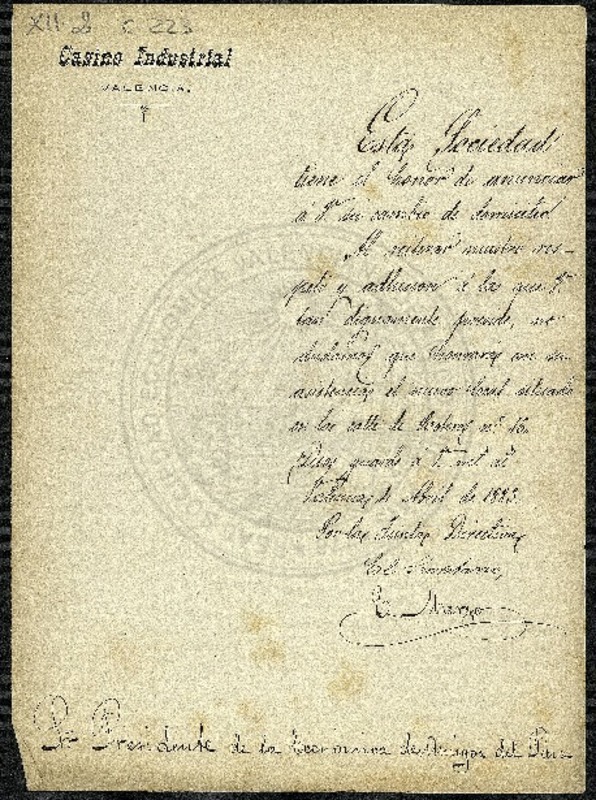 XII 2 C 223
Casino Industrial
VALENCIA.
Esta Sociedad
tiene el honor de anunciar
á V. su cambio de domicilio.
Al reiterar nuestro res-
peto y adhesion á la que V.
tan dignamente preside, no
dudamos que honrará con su
asistencia el nuevo local situado
en la calle de nº 15.
Dios guarde á V. mˢ aˢ
Valencia de Abril de 1883.
Por la Junta Directiva,
El Secretario,
E. Marzo
Sr. Presidente de la Economica de Amigos del Pais